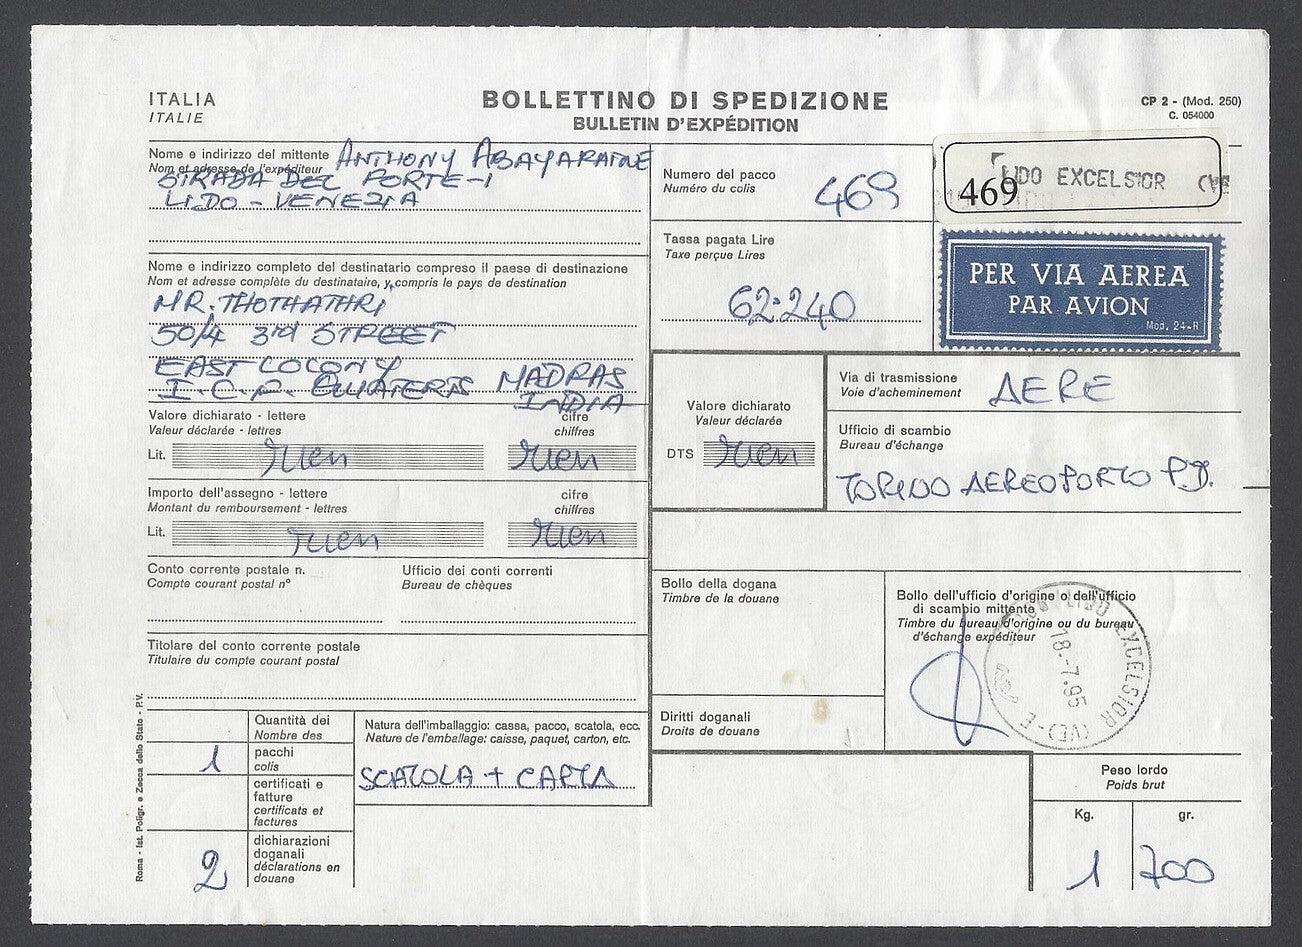 ITALIA
ITALIE
BOLLETTINO DI SPEDIZIONE
BULLETIN D'EXPÉDITION
CP 2 - (Mod. 250)
C. 054000
Nome e indirizzo del mittente ANTHONY ABAYARATNE
Nom et adresse de l'expéditeur
STRADA DEL FORTE-1
LIDO - VENEZIA
Numero del pacco
Numéro du colis
469
469
LIDO EXCELSIOR (VE
Tassa pagata Lire
Taxe perçue Lires
62.240
PER VIA AEREA
PAR AVION
Mod. 24-R
Nome e indirizzo completo del destinatario compreso il paese di destinazione
Nom et adresse complète du destinataire, y compris le pays de destination
MR. THOTHATHRI
50/4 3rd STREET
EAST COLONY
I.C.F. MADRAS
INDIA
Valore dichiarato - lettere
Valeur déclarée - lettres
cifre
chiffres
Lit.
Importo dell'assegno - lettere
Montant du remboursement - lettres
cifre
chiffres
Lit.
Valore dichiarato
Valeur déclarée
DTS
Via di trasmissione
Voie d'acheminement
AEREA
Ufficio di scambio
Bureau d'échange
TORINO AEREOPORTO P.D.
Conto corrente postale n.
Compte courant postal n°
Ufficio dei conti correnti
Bureau de chèques
Titolare del conto corrente postale
Titulaire du compte courant postal
Bollo della dogana
Timbre de la douane
Bollo dell'ufficio d'origine o dell'ufficio
di scambio mittente
Timbre du bureau d'origine ou du bureau
d'échange expéditeur
LIDO EXCELSIOR (VE)-E
18.-7.95
Diritti doganali
Droits de douane
Quantità dei
Nombre des
1
pacchi
colis
certificati e
fatture
certificats et
factures
2
dichiarazioni
doganali
déclarations en
douane
Natura dell'imballaggio: cassa, pacco, scatola, ecc.
Nature de l'emballage: caisse, paquet, carton, etc.
SCATOLA + CARTA
Peso lordo
Poids brut
Kg.
gr.
1
700
Roma - Ist. Poligr. e Zecca dello Stato - P.V.